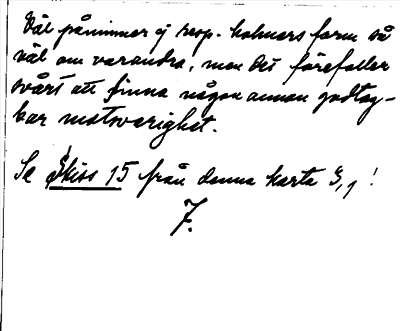 Väl påminner ej resp. holmars form så
väl om varandra, men det förefaller
svårt att finna någon annan godtag-
bar motsvarighet.
Se Skiss 15 från denna karta
F.